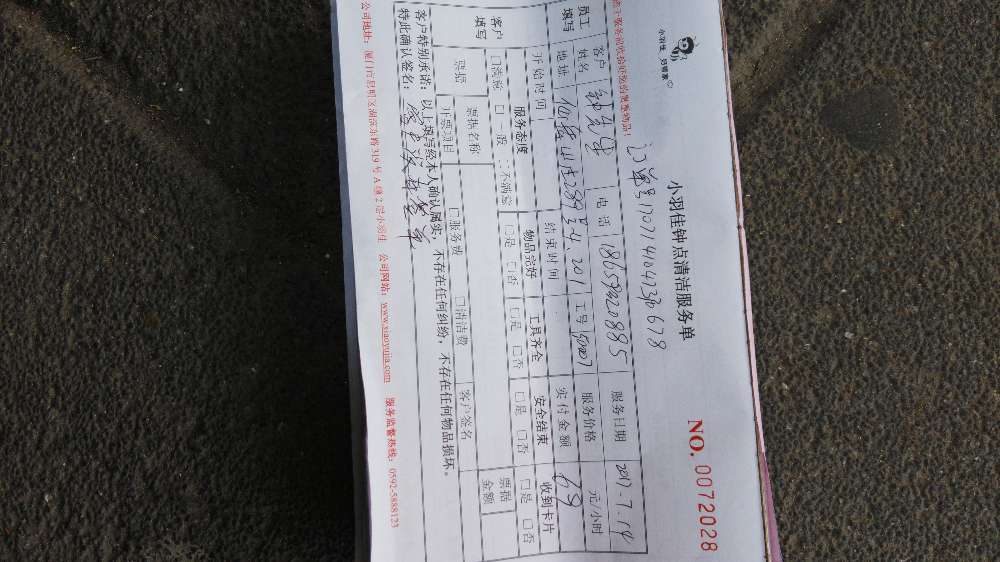 小羽佳 好管家
小羽佳钟点清洁服务单
NO. 0072028
订单号
员工填写
客户姓名 电话 18659220885 服务日期 2017-7.14
地址 仙岳山庄289号4 201 工号 服务价格 元/小时
开始时间 结束时间 实付金额
客户填写
服务态度 物品完好 工具齐全 安全结束 收到卡片
□满意 □一般 □不满意 □是 □否 □是 □否 □是 □否 □是 □否
票据 票据名称 □服务费 □清洁费 客户签名 票据金额
开票项目
客户特别承诺：以上填写经本人确认属实，不存在任何纠纷，不存在任何物品损坏。
特此确认签名：
公司地址：厦门市思明区湖滨东路319号A幢2层小羽佳 公司网站：www.xiaoyujia.com 服务监督热线：0592-5888123